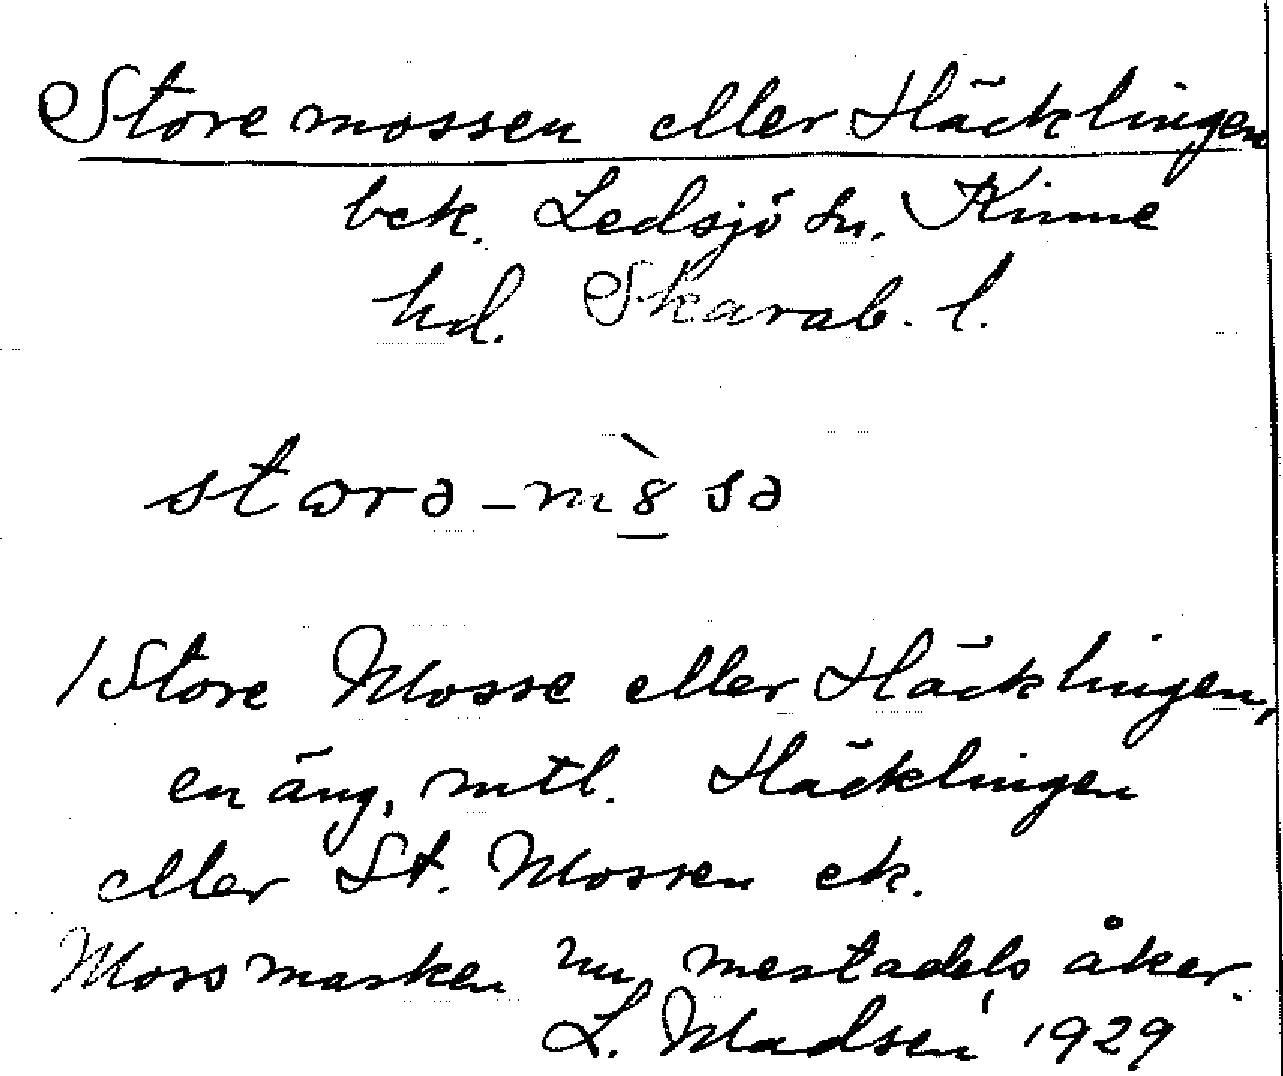 Store mossen eller Häcklingen
bek. Ledsjö sn. Kinne
hd. Skarab. l.
storə-m8̀sə
/Store Mosse eller Häcklingen,
en äng, mtl. Häcklingen
eller St. Mossen ek.
Mossmarken nu mestadels åker.
L. Madsén 1929